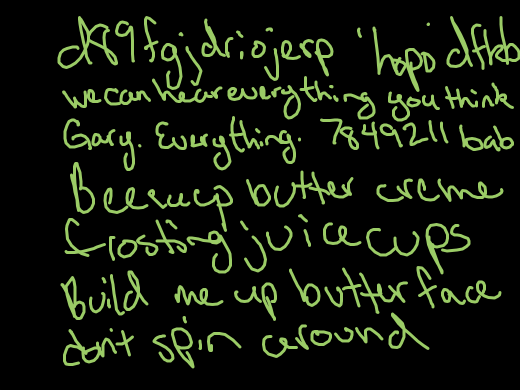 d89fgjdriojerp 'hopo' dfkb
we can hear everything you think
Gary. Everything. 7849211 bab
butter creme
frosting juice cups
Build me up butter face
don't spin around